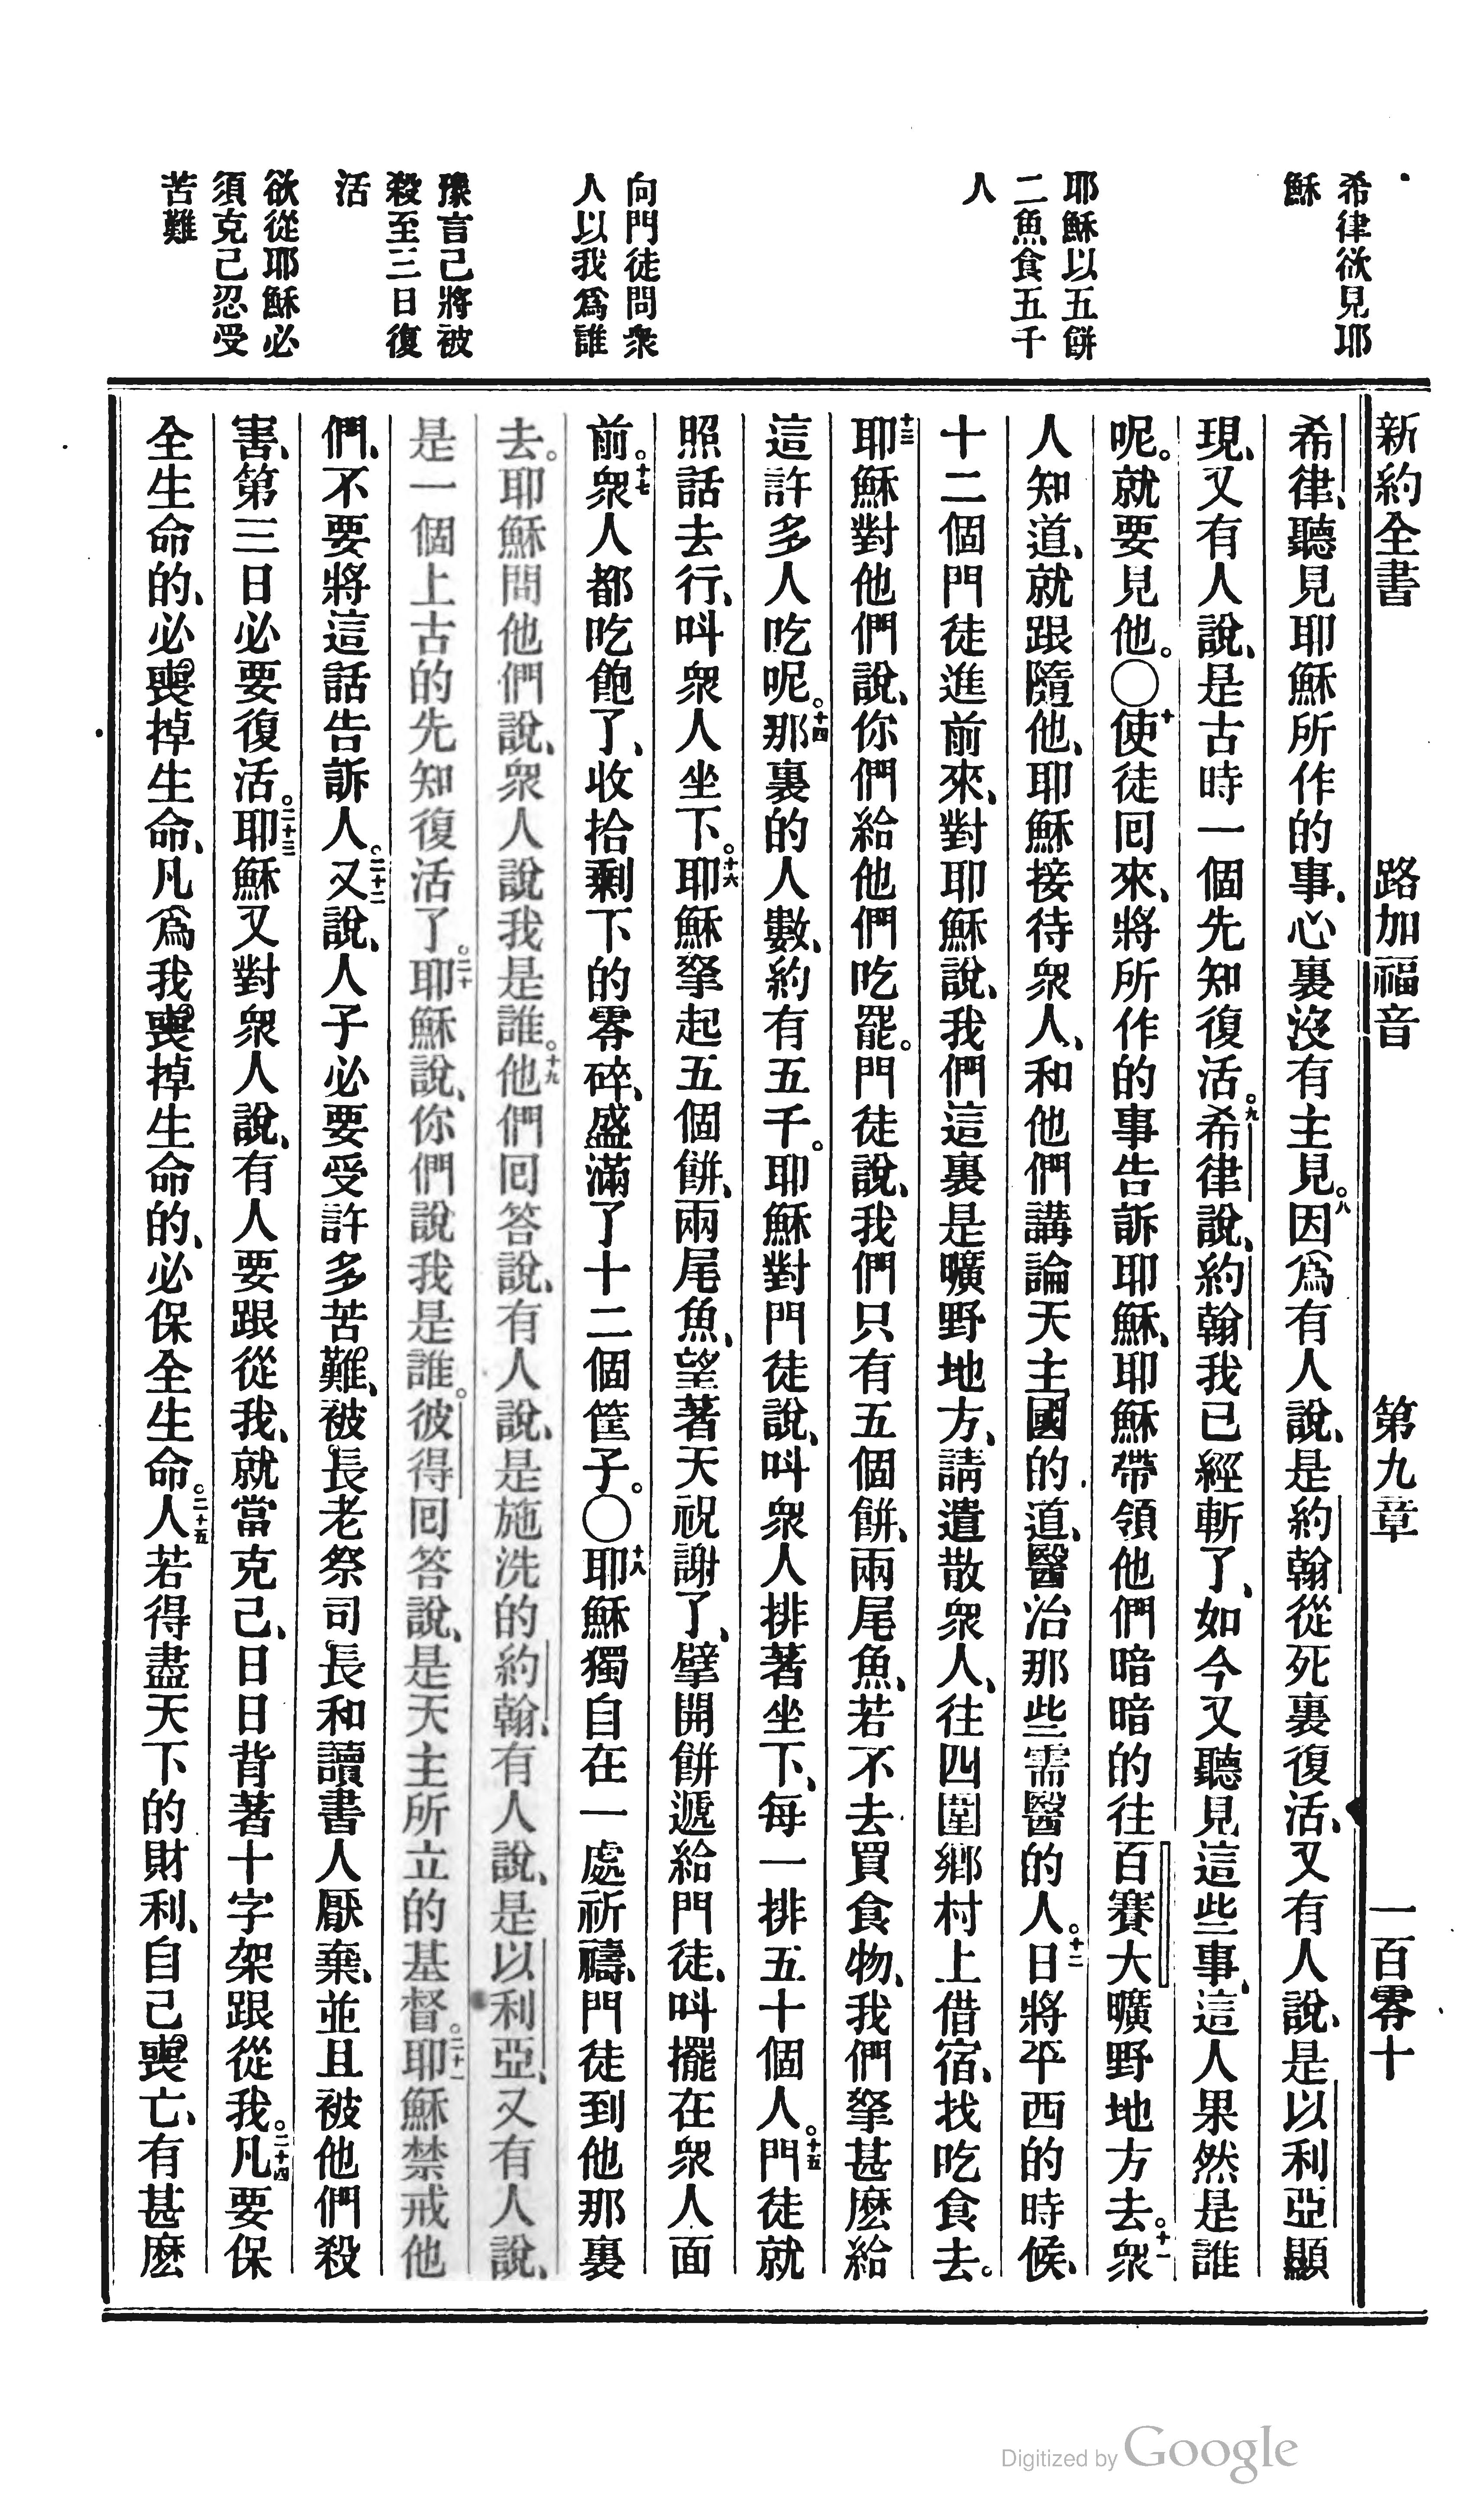 新約全書　路加福音　第九章　一百零十
希律欲見耶
穌
耶穌以五餅
二魚食五千
人
向門徒問衆
人以我爲誰
豫言己將被
殺至三日復
活
欲從耶穌必
須克己忍受
苦難
希律、聽見耶穌所作的事、心裏沒有主見。八因爲有人說、是約翰從死裏復活、又有人說、是以利亞顯
現、又有人說、是古時一個先知復活。九希律說、約翰我已經斬了、如今又聽見這些事、這人果然是誰
呢。就要見他。〇十使徒囘來、將所作的事告訴耶穌、耶穌帶領他們暗暗的往百賽大曠野地方去。十一衆
人知道、就跟隨他、耶穌接待衆人、和他們講論天主國的道、醫治那些需醫的人。十二日將平西的時候、
十二個門徒進前來、對耶穌說、我們這裏是曠野地方、請遣散衆人、往四圍鄉村上借宿、找吃食去。
十三耶穌對他們說、你們給他們吃罷。門徒說、我們只有五個餅、兩尾魚、若不去買食物、我們拏甚麽給
這許多人吃呢。十四那裏的人數、約有五千。耶穌對門徒說、呌衆人排著坐下、每一排五十個人。十五門徒就
照話去行、呌衆人坐下。十六耶穌拏起五個餅、兩尾魚、望著天祝謝了、擘開餅遞給門徒、呌擺在衆人面
前。十七衆人都吃飽了、收拾剩下的零碎、盛滿了十二個筐子。〇十八耶穌獨自在一處祈禱、門徒到他那裏
去。耶穌問他們說、衆人說我是誰。十九他們囘答說、有人說、是施洗的約翰、有人說、是以利亞、又有人說、
是一個上古的先知復活了。二十耶穌說、你們說我是誰。彼得囘答說、是天主所立的基督。二十一耶穌禁戒他
們、不要將這話告訴人。二十二又說、人子必要受許多苦難、被長老祭司長和讀書人厭棄、並且被他們殺
害、第三日必要復活。二十三耶穌又對衆人說、有人要跟從我、就當克己、日日背著十字架跟從我。二十四凡要保
全生命的、必喪掉生命、凡爲我喪掉生命的、必保全生命。二十五人若得盡天下的財利、自己喪亡、有甚麽
Digitized by Google